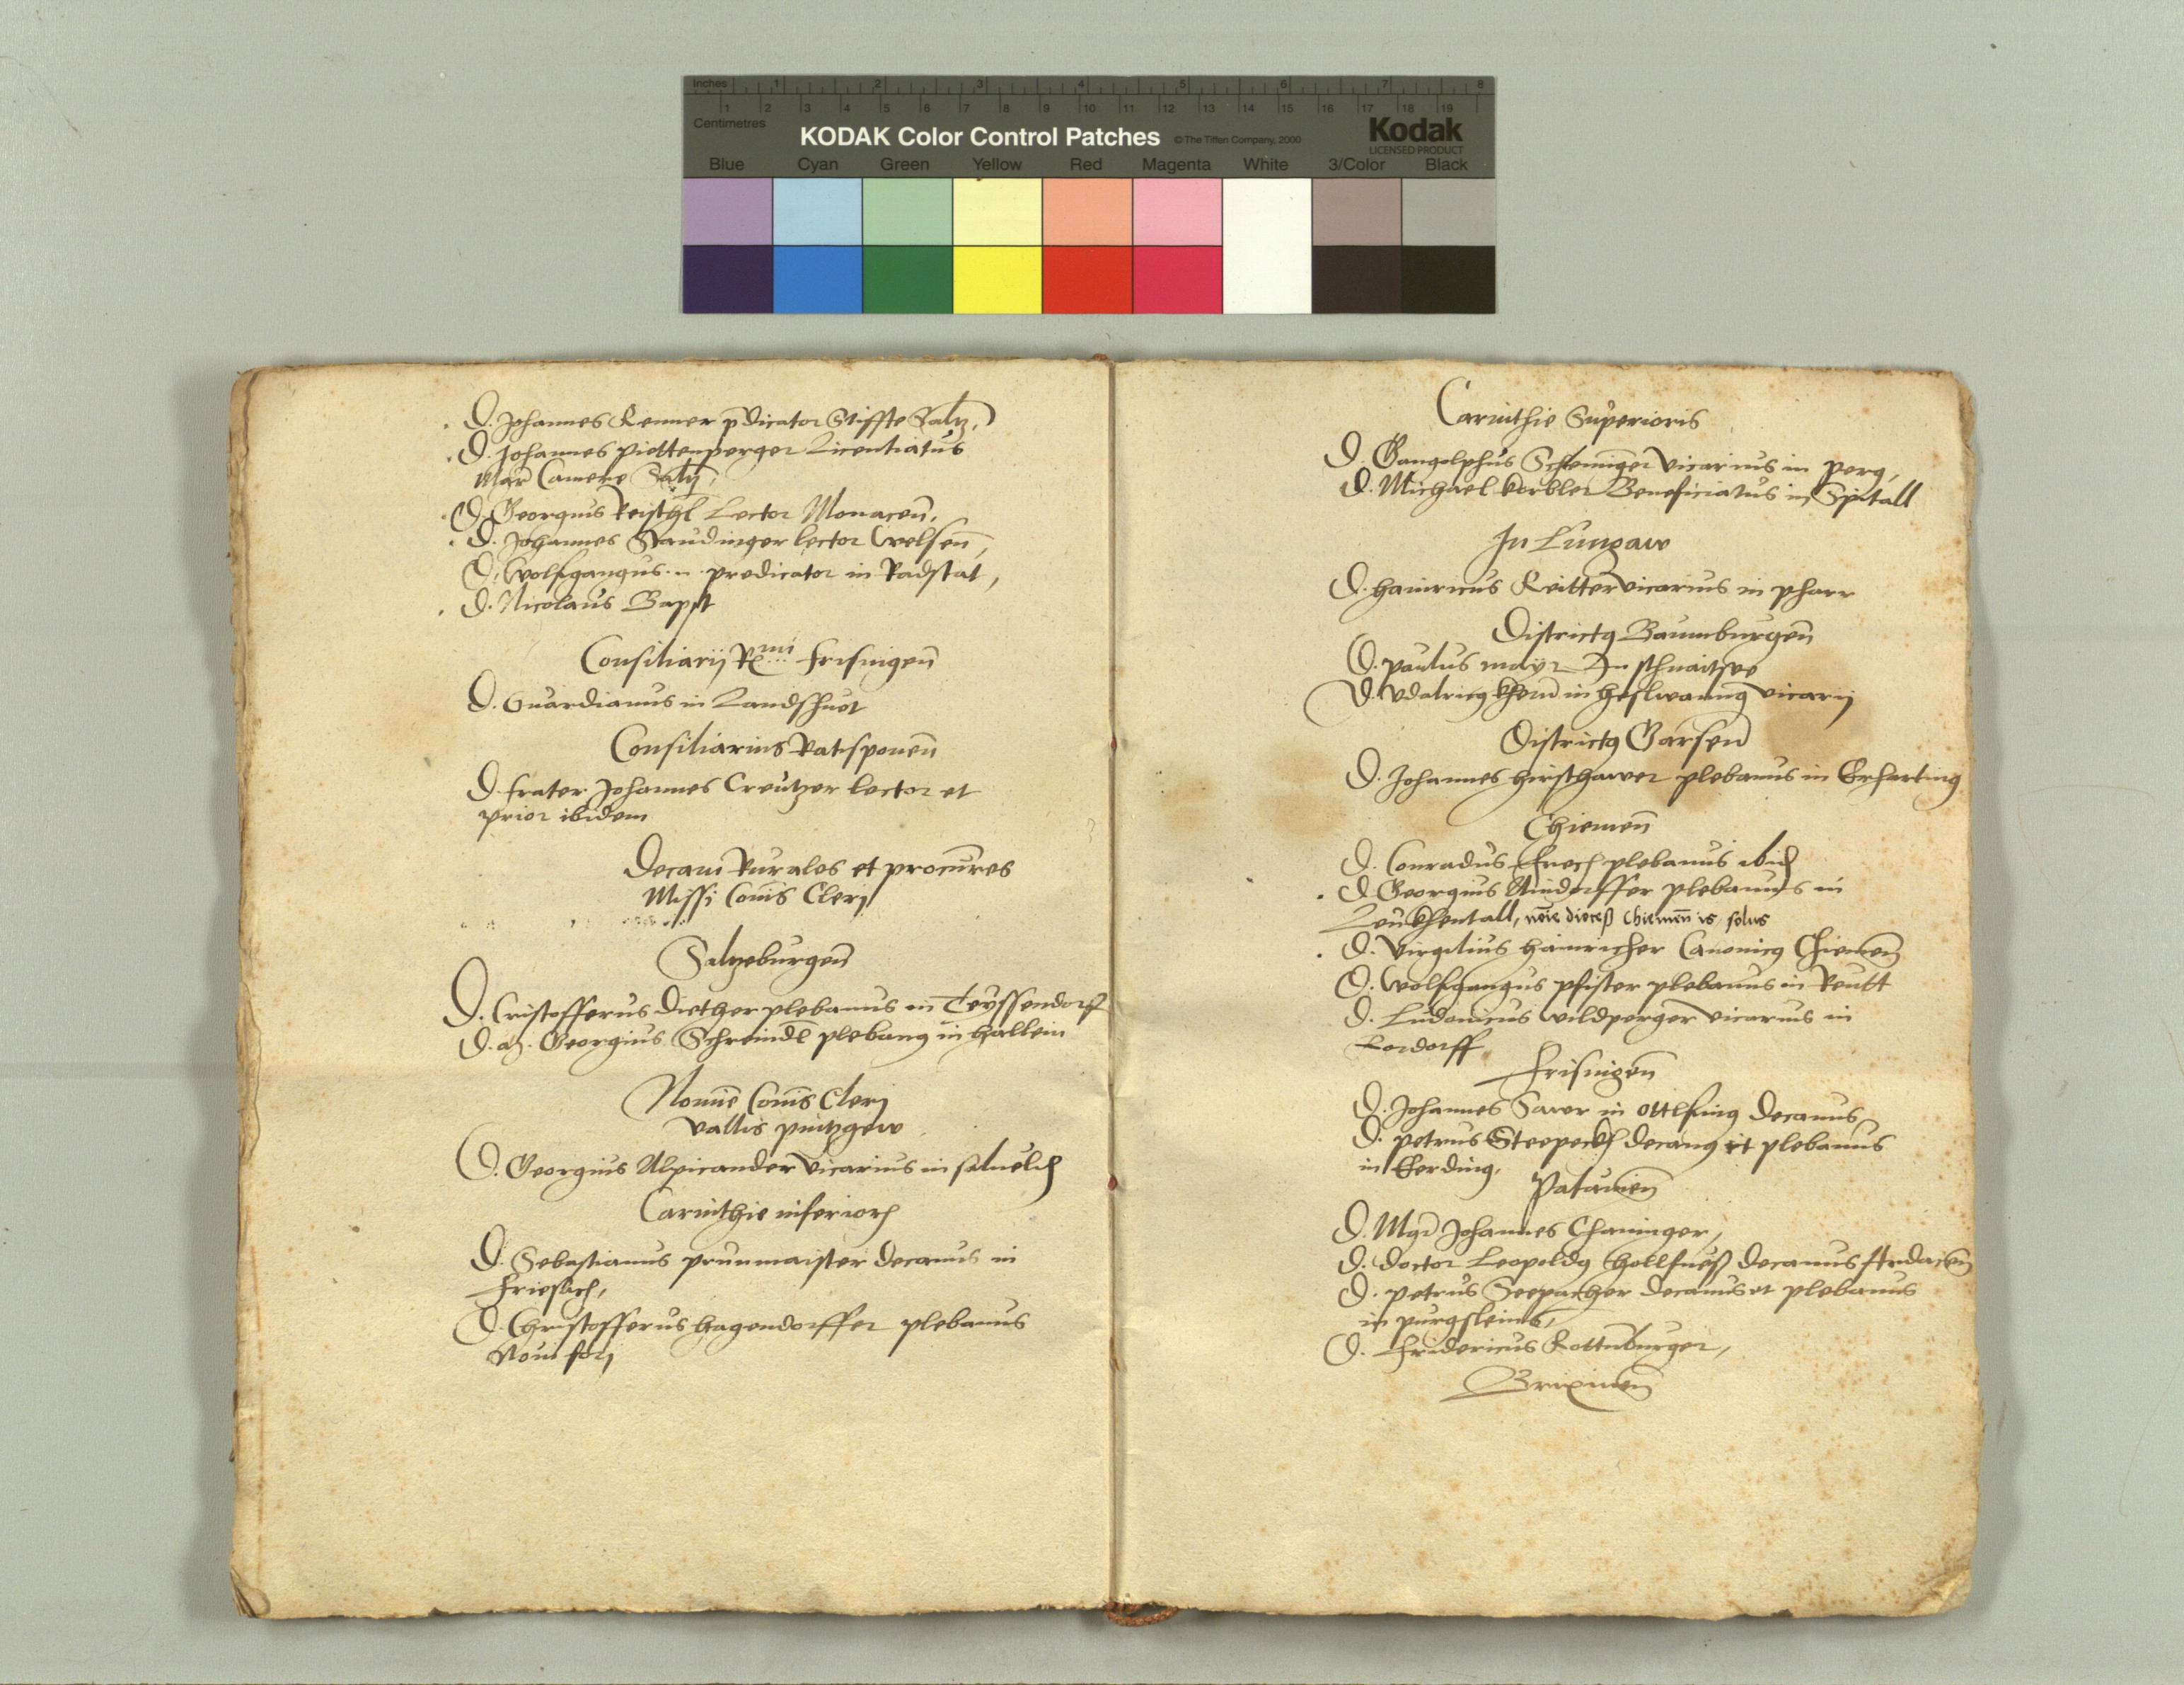 Inches 1 2 3 4 5 6 7 8
1 2 3 4 5 6 7 8 9 10 11 12 13 14 15 16 17 18 19
Centimetres
KODAK Color Control Patches © The Tiffen Company, 2000 Kodak
LICENSED PRODUCT
Blue Cyan Green Yellow Red Magenta White 3/Color Black
D. Johannes Renner p̄dicator Stiffte Saltz.
D. Johannes Piettenperger Licentiatus
Camere Saltz,
D. Georgius Reischl Lector Monacen̄,
D. Johannes Staudinger lector Welsen̄,
D. Wolfgangus .n. predicator in Radstat,
D. Nicolaus Bapst
Consiliarij Rmi Frisingen̄
D. Guardianus in Landshuot
Consiliarius Ratisponen̄
D. frater Johannes Creützer lector et
prior ibidem
Decani Rurales et procūres
Missi Com̄is Clerj
Saltzeburgen̄
D. Cristofferus Diether plebanus in Teyssendorff
D. Georgius Schreindl plebanꝯ in Hallein
Nom̄ie Com̄is Clerj
Vallis pintzgew
D. Georgius Alpicander Vicarius in
Carinthie inferiorꝭ
D. Sebastianus prunmaister decanus in
Friesach,
D. Christofferus Hagendorffer plebanus
Noui forj
Carinthie Superioris
D. Gangolphus Vicarius in perg,
D. Michael Korbler Beneficiatus in Spitall
In Lungaw
D. Hainricus Reitter vicarius in pharr
Districtꝯ Baumburgen̄
D. paulus mayr In schnaitsee
D. Vdalricꝯ in Heslwanng vicarij
Districtꝯ Garsen̄
D. Johannes Hirsthawer plebanus in Erharting
Chiemen̄
D. Conradus Frech plebanus ibid
D. Georgius Nindorffer plebanus in
Leükhentall, no͞ie dioceß Chiemen̄ is solus
D. Virgilius Hainricher Canonicꝯ Chiemen̄
D. Wolfgangus pfister plebanus in Reutt
D. Ludouicus Wildperger vicarius in
Lordorff
Frisingen̄
D. Johannes Sawr in Ottlfing Decanus
D. petrus Steepeckh decanꝯ et plebanus
in Erding.
Patauien̄
D. Mgr̄ Johannes Chaninger,
D. doctor Leopoldꝯ Hollfueß decanus Ardacen̄
D. petrus Seepacher decanus et plebanus
in purgsleinis,
D. Fridericus Rottnburger,
Brixinen̄